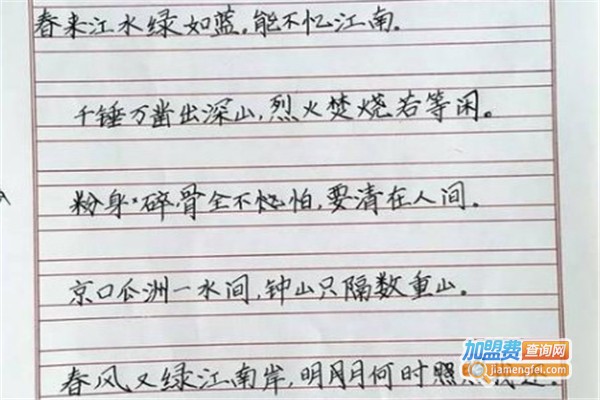 春来江水绿如蓝。能不忆江南。
千锤万凿出深山，烈火焚烧若等闲。
粉身碎骨全不怕，要清在人间。
京口瓜洲一水间，钟山只隔数重山。
春风又绿江南岸，明月何时照
加盟费查询网
jiamengfei.com